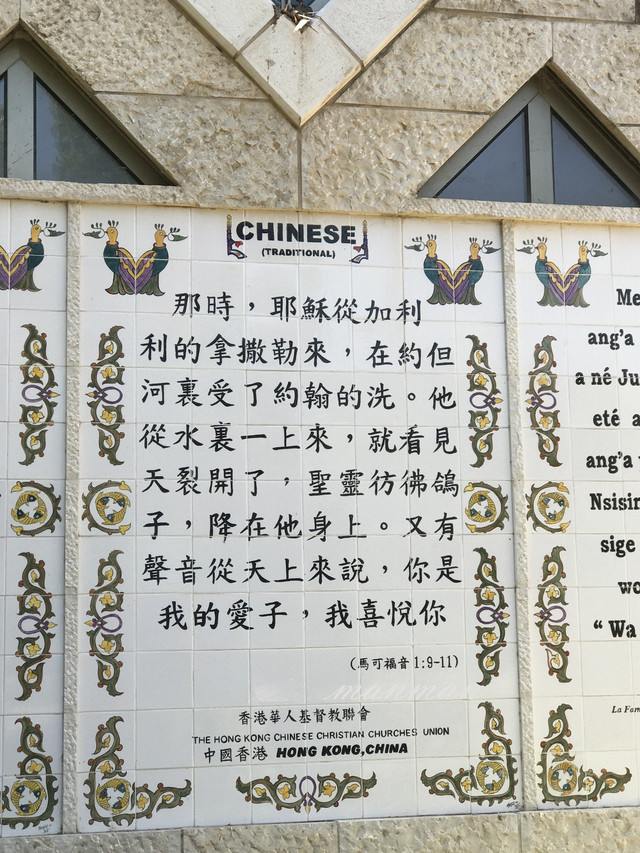 CHINESE
(TRADITIONAL)
那時，耶穌從加利
利的拿撒勒來，在約但
河裏受了約翰的洗。他
從水裏一上來，就看見
天裂開了，聖靈彷彿鴿
子，降在他身上。又有
聲音從天上來說，你是
我的愛子，我喜悅你
(馬可福音1:9-11)
香港華人基督教聯會
THE HONG KONG CHINESE CHRISTIAN CHURCHES UNION
中國香港 HONG KONG,CHINA
Me
ang'a
a né Ju
eté a
ang'a
Nsisin
sige
wo
"Wa
La Fam